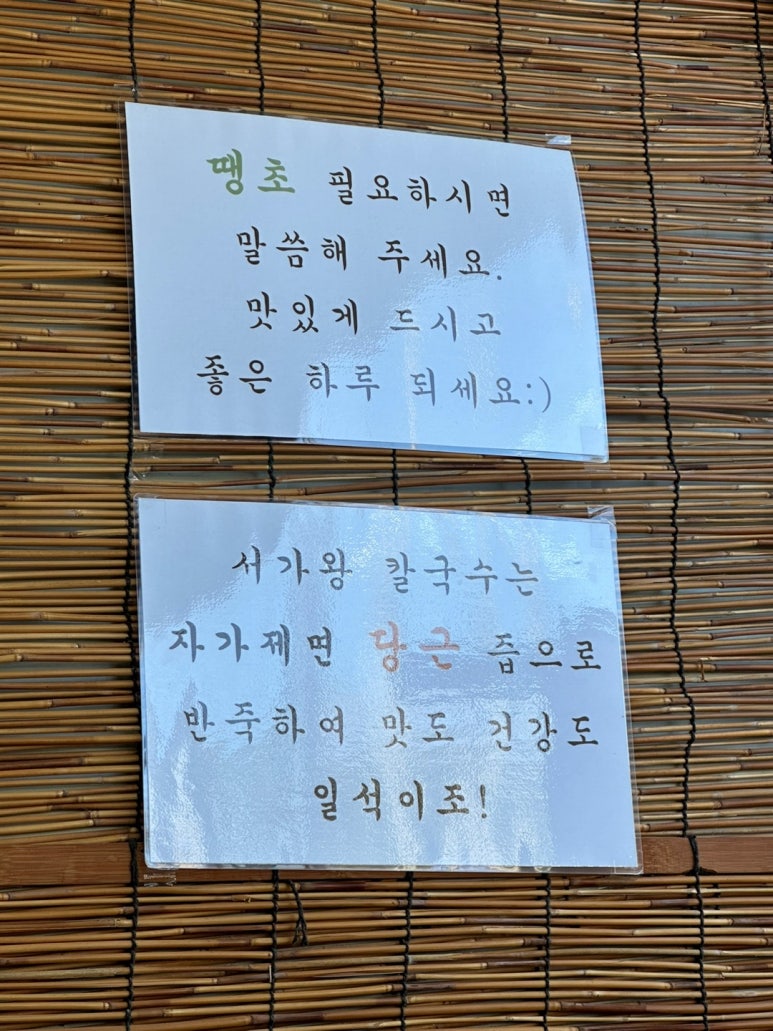 땡초 필요하시면
말씀해 주세요.
맛있게 드시고
좋은 하루 되세요:)
서가왕 칼국수는
자가제면 당근 즙으로
반죽하여 맛도 건강도
일석이조!